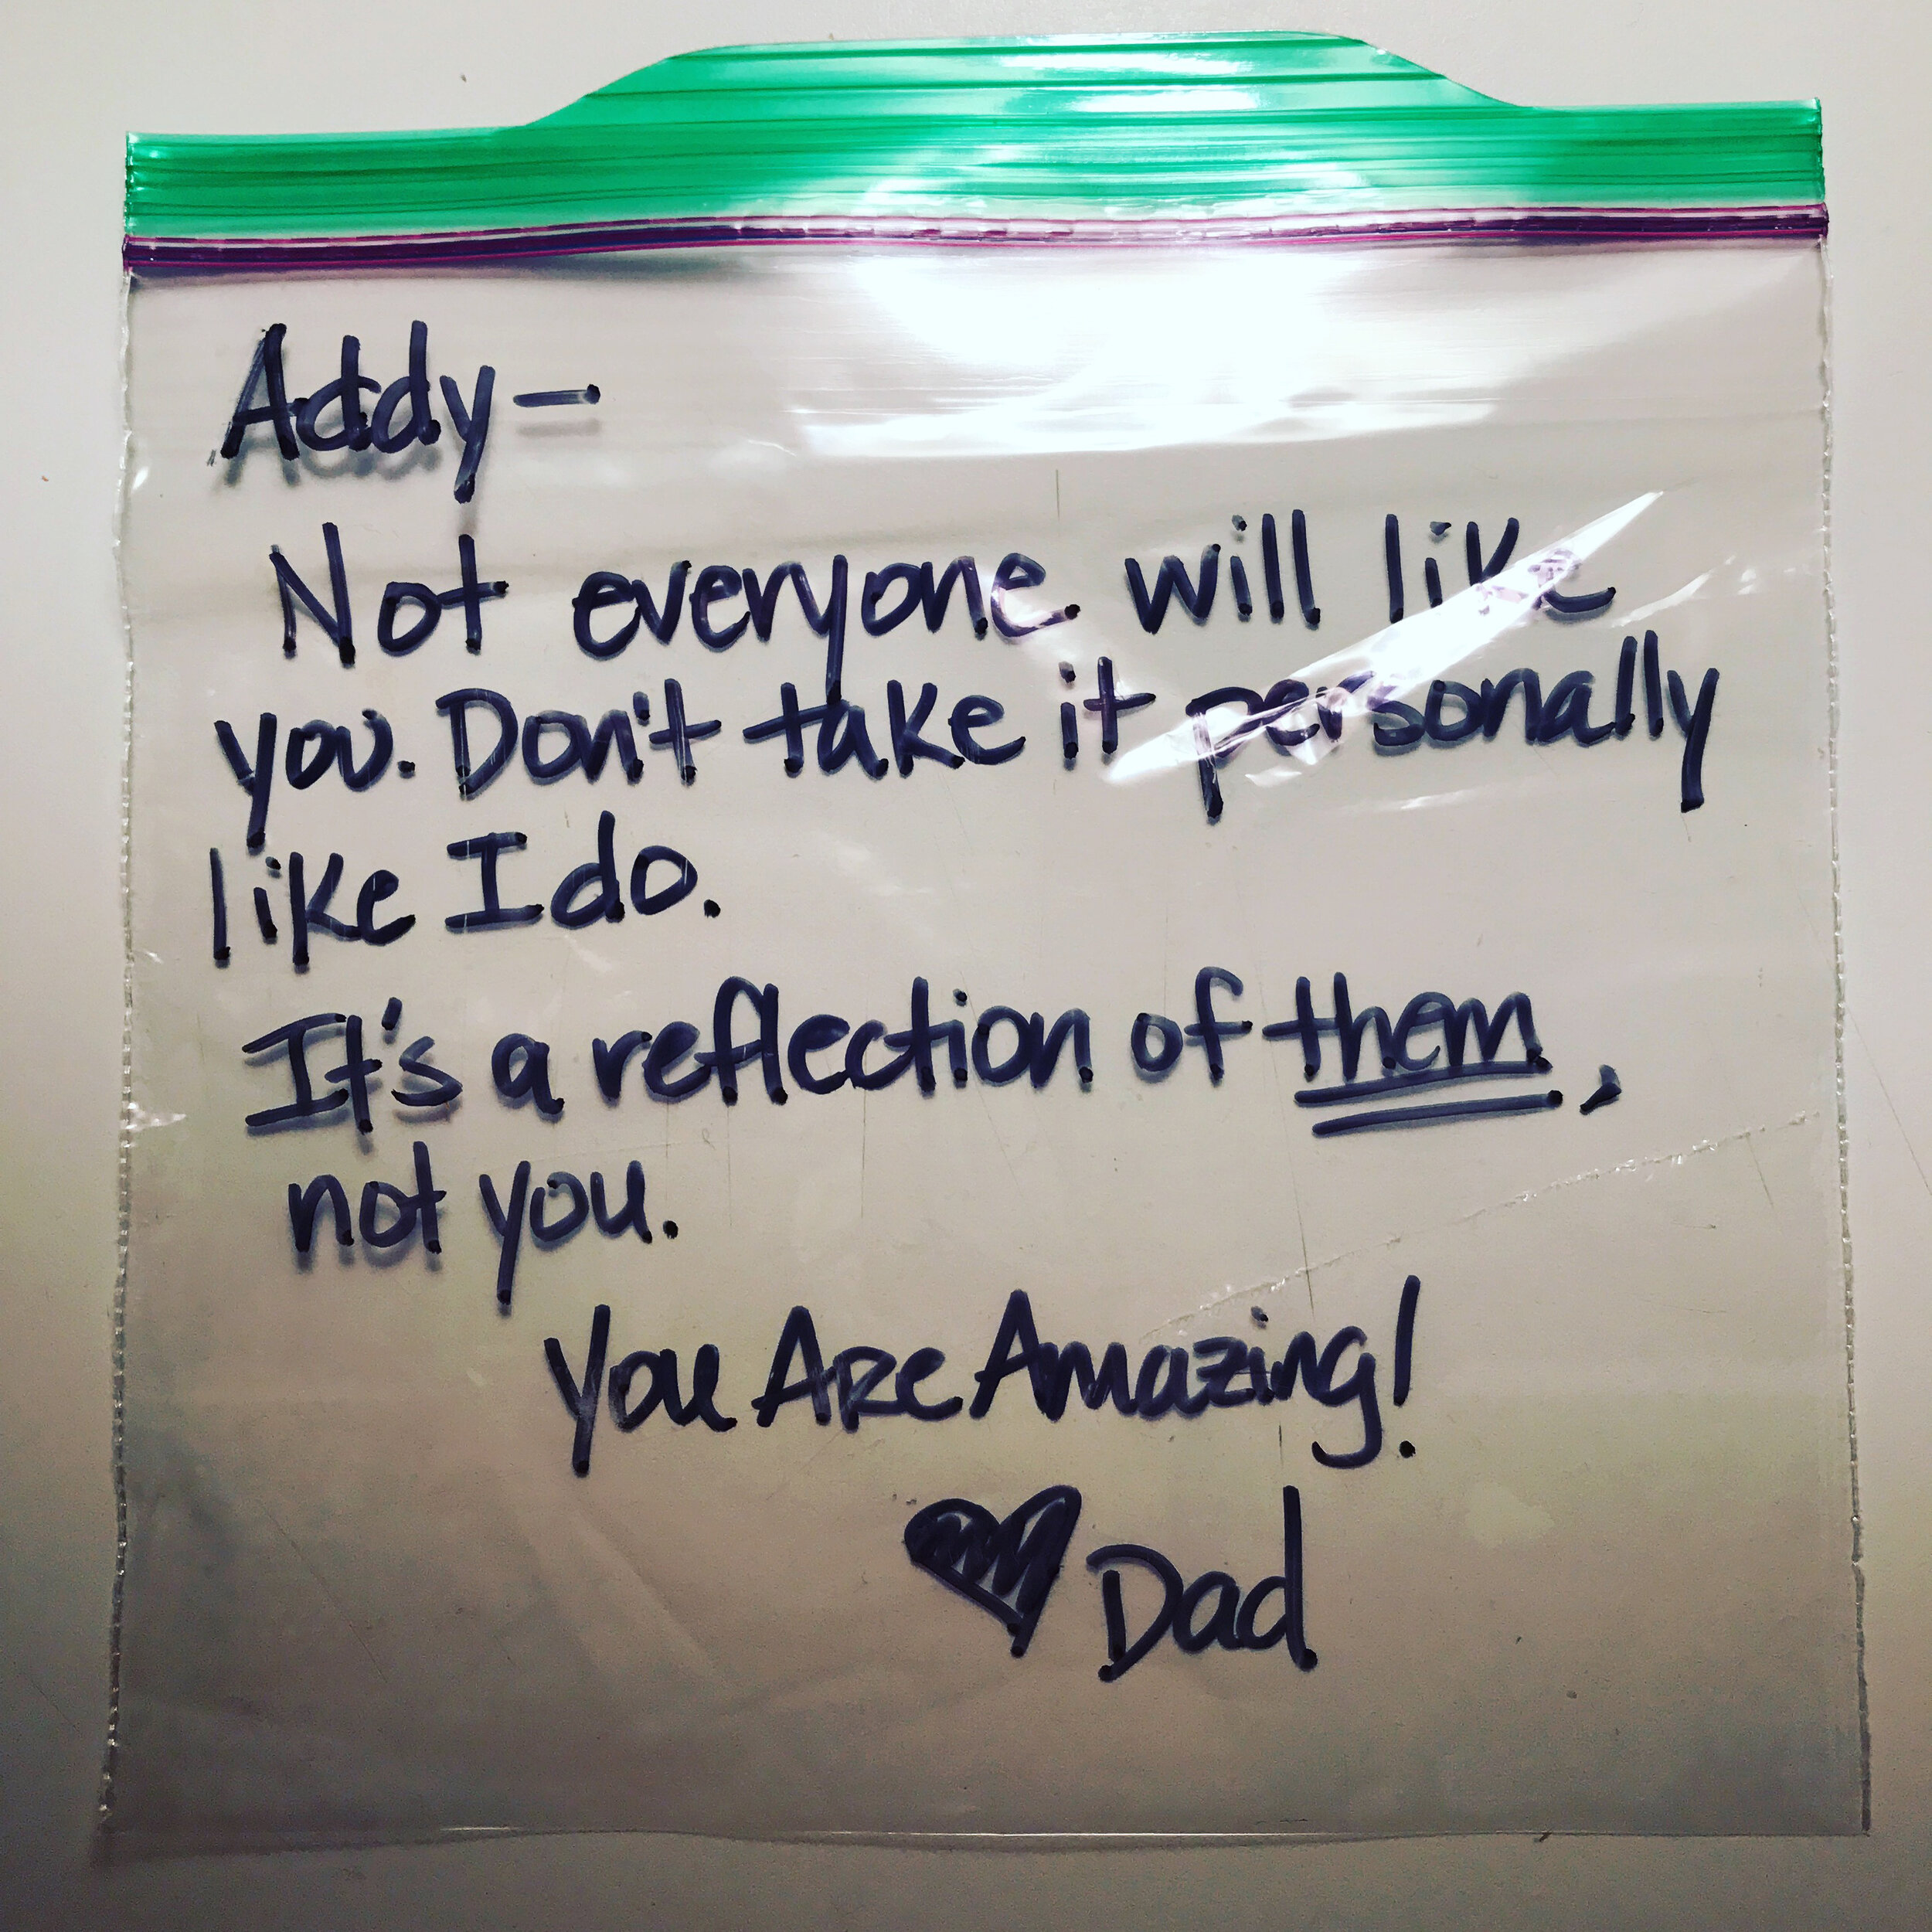 Addy-
Not everyone will like
you. Don't take it personally
like I do.
It's a reflection of them,
not you.
You Are Amazing!
Dad